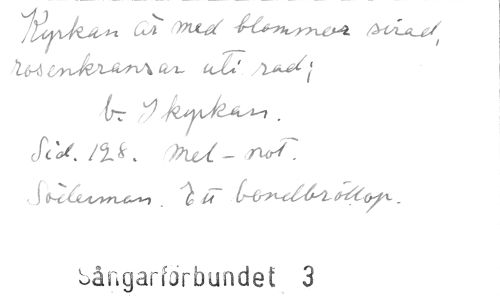 Kyrkan är med blommor sirad,
rosenkransar uti rad;
b. I kyrkan.
Sid. 128. Mel-not.
Söderman. Ett bondbröllop.
Sångarförbundet 3